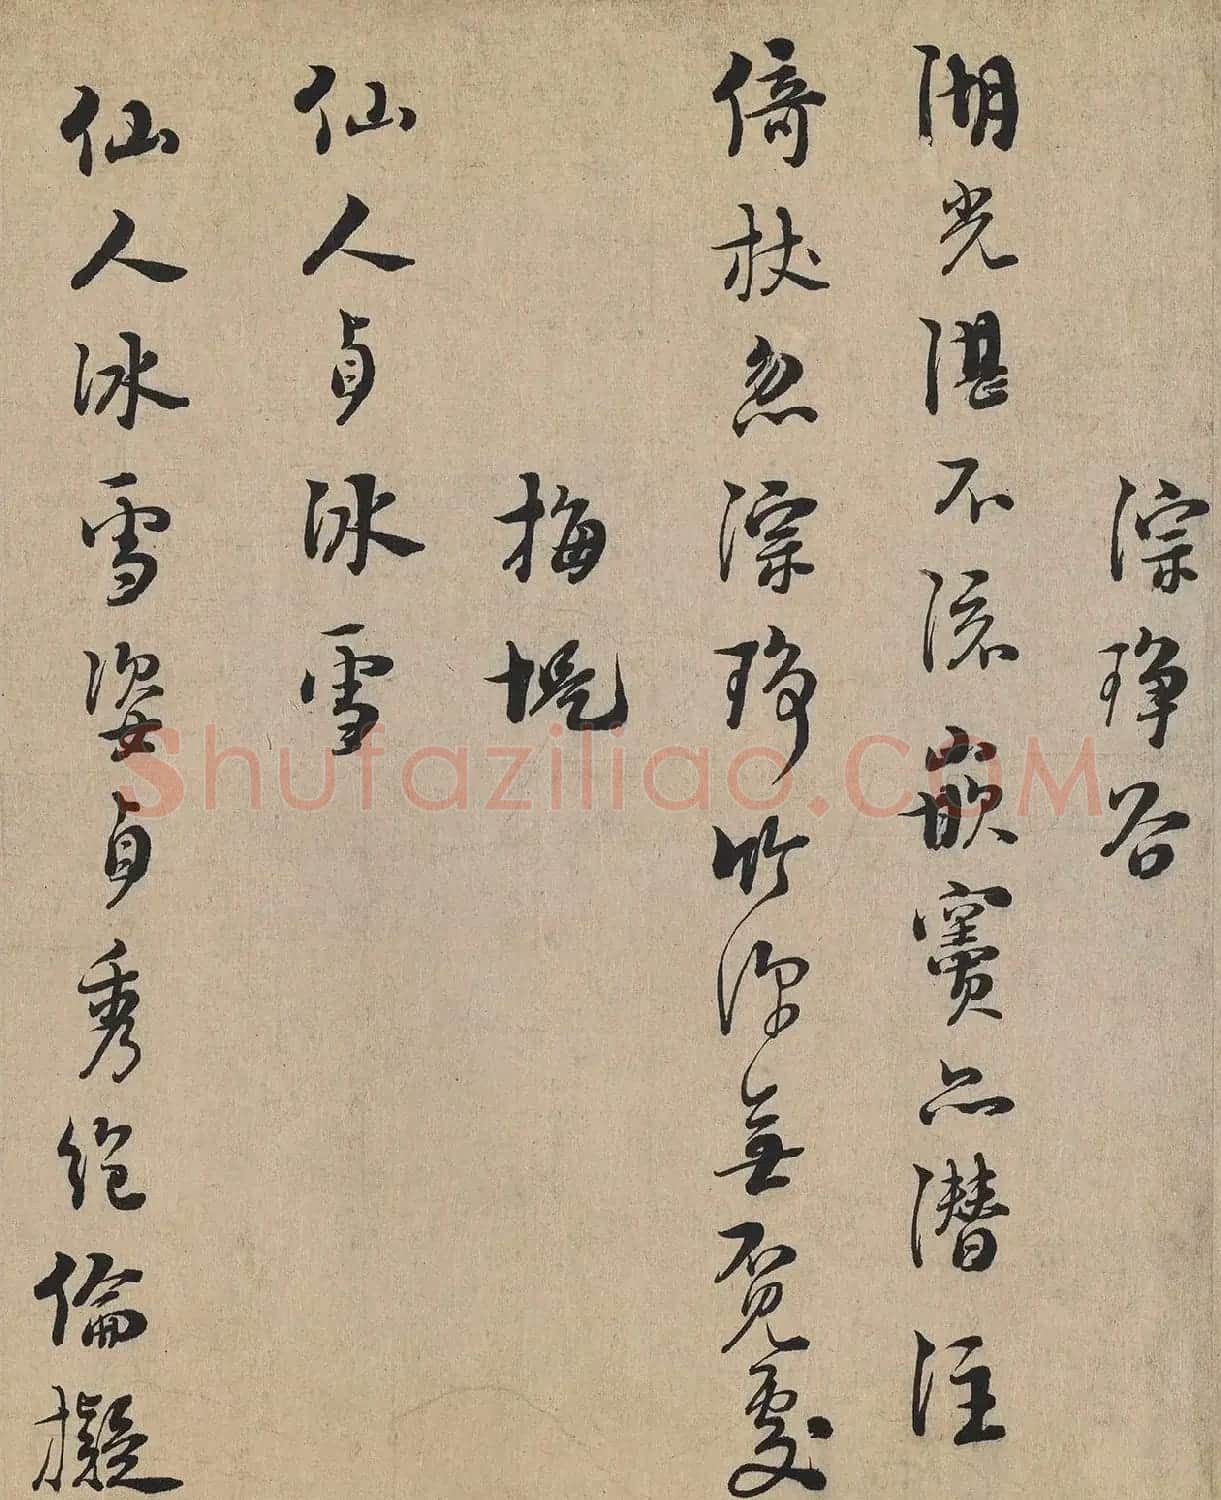 淙琤谷
湖光湛不流嵌竇亦潛注
倚杖忽淙琤竹深無覔處
梅堤
仙人貞冰雪
仙人冰雪姿貞秀絕倫擬
Shufaziliao.COM